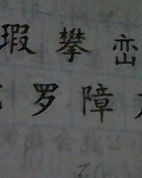 瑕攀峦
罗障